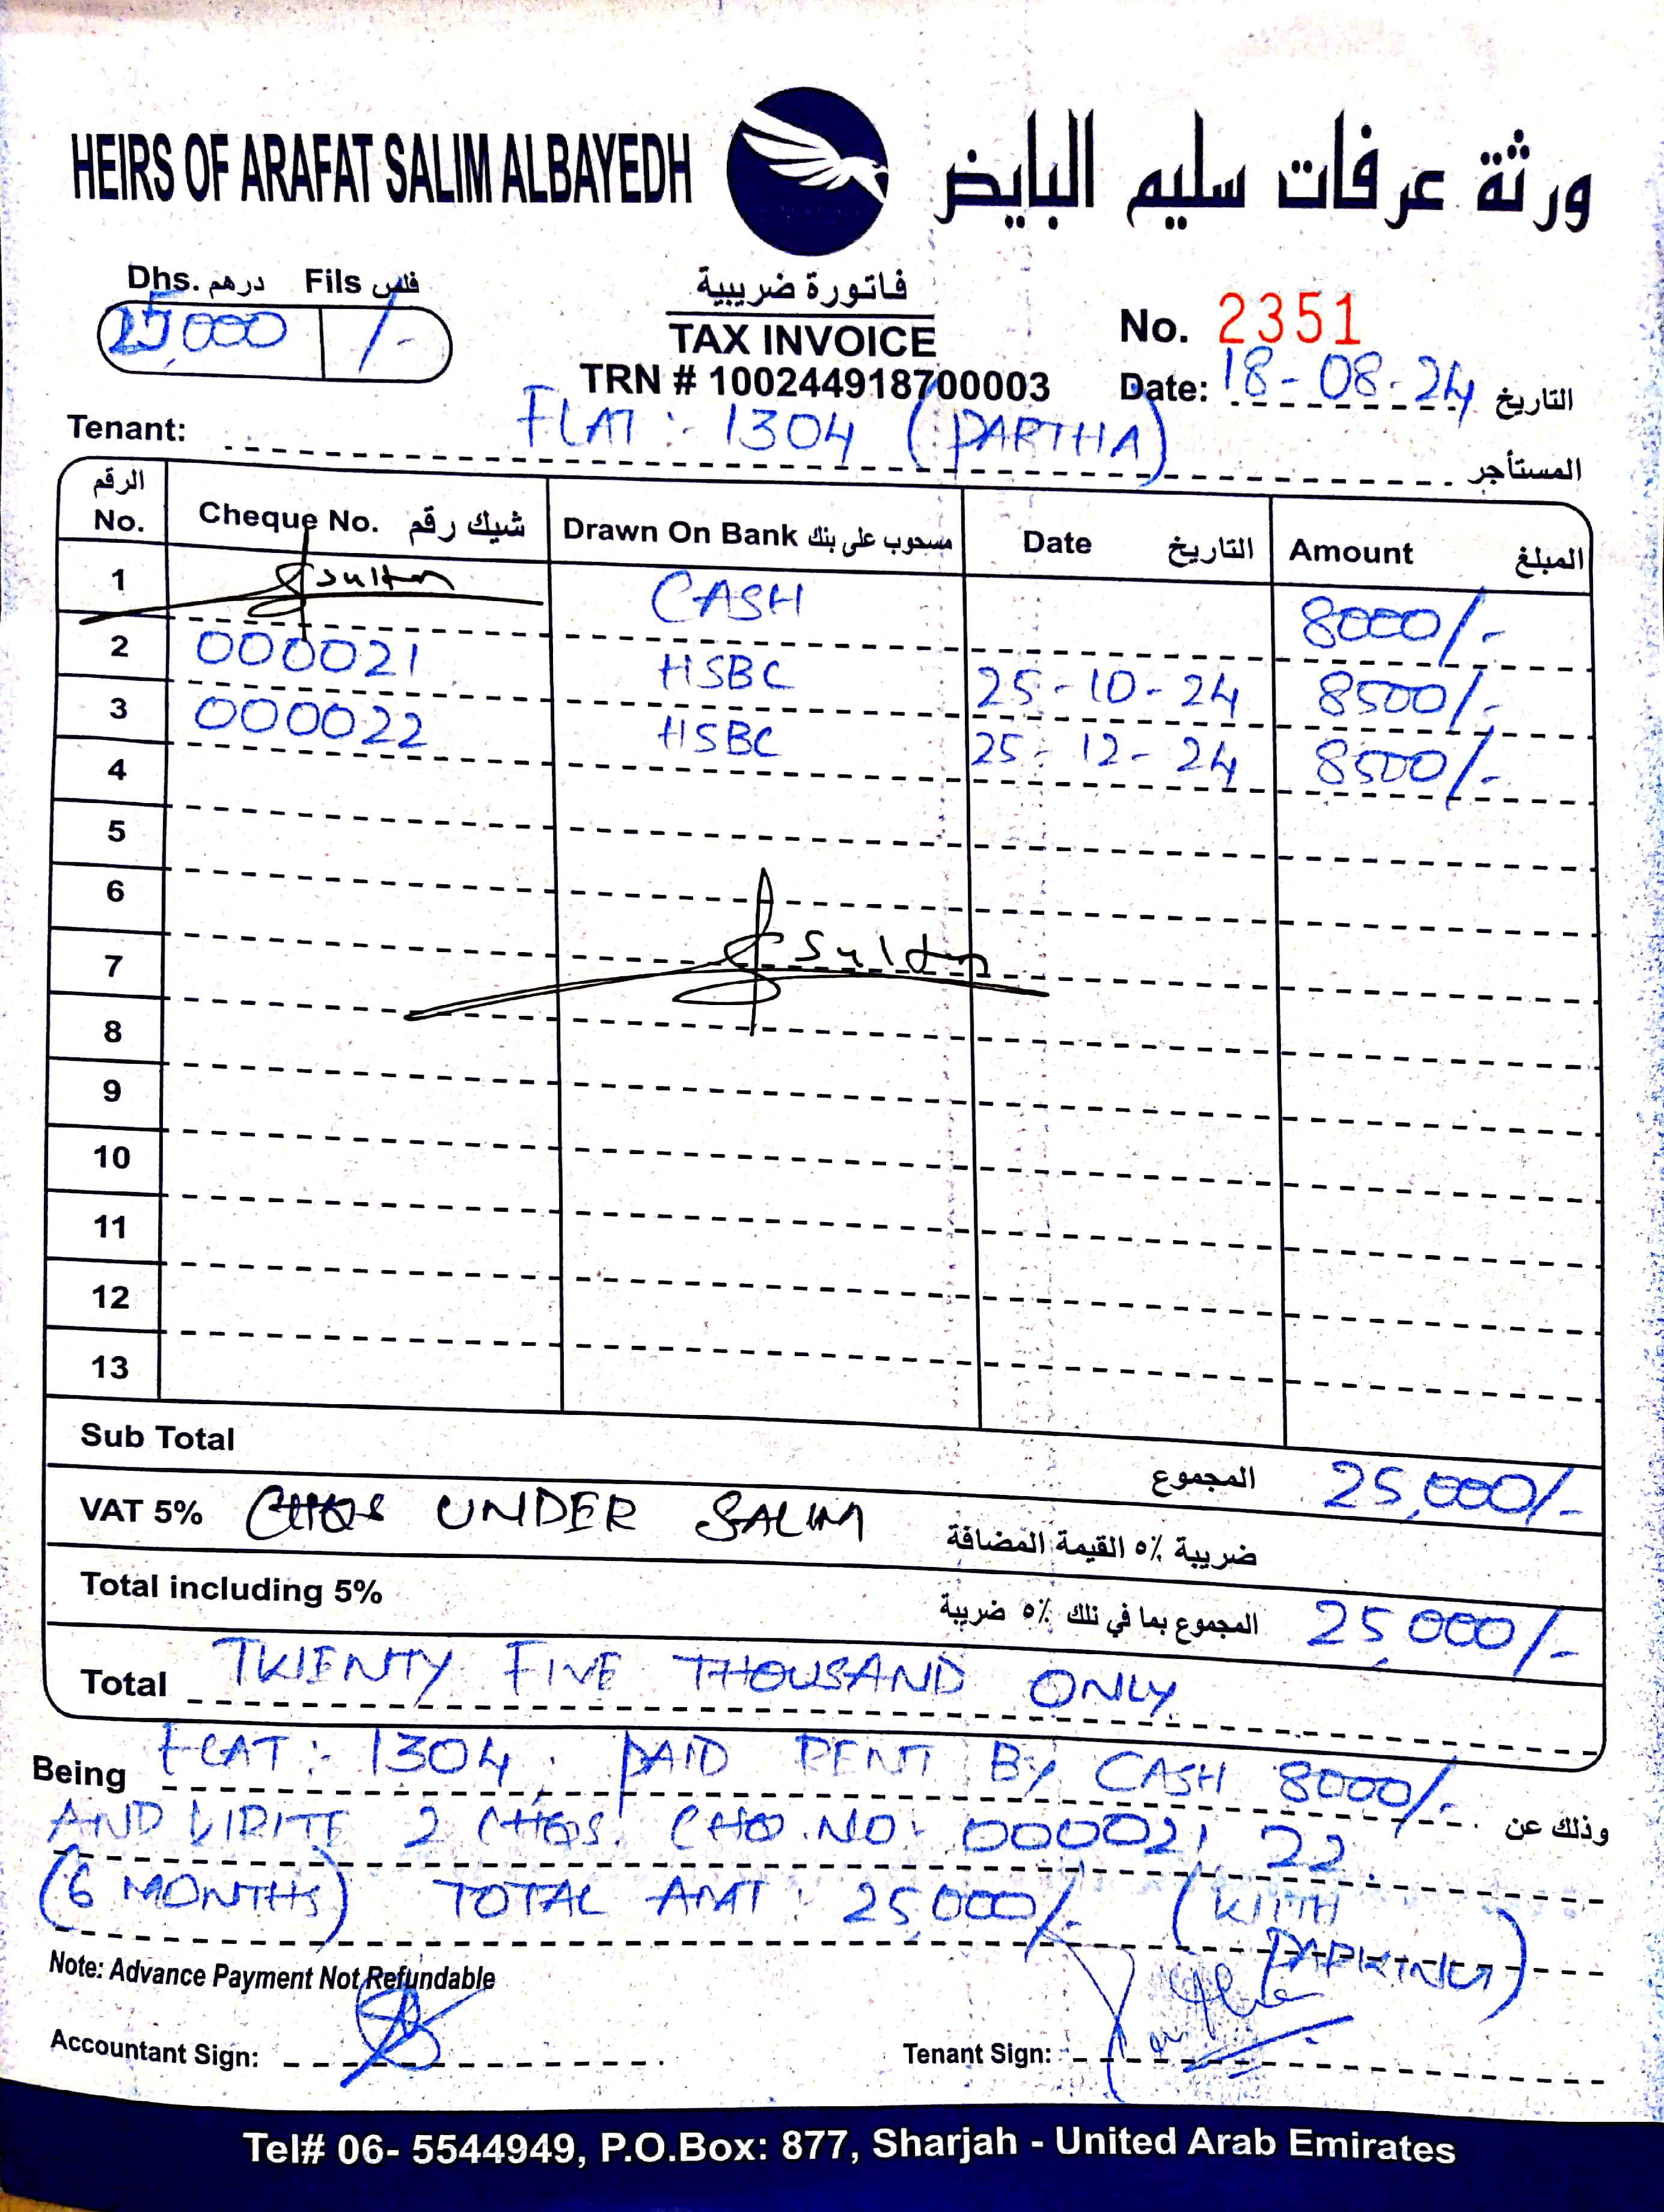 HEIRS OF ARAFAT SALIM ALBAYEDH ورثة عرفات سليم البايض
Dhs. درهم Fils فلس
25,000 /-
فاتورة ضريبية
TAX INVOICE
TRN # 100244918700003
No. 2351
Date: 18-08-24 التاريخ
Tenant: FLAT:- 1304 (PARTHA) المستأجر
الرقم No. Cheque No. شيك رقم Drawn On Bank مسحوب على بنك Date التاريخ Amount المبلغ
1 Sultan CASH 8000/-
2 000021 HSBC 25-10-24 8500/-
3 000022 HSBC 25-12-24 8500/-
4
5
6
7 Sultan
8
9
10
11
12
13
Sub Total المجموع 25,000/-
VAT 5% CHQS UNDER SALIM ضريبة ٥٪ القيمة المضافة
Total including 5% المجموع بما في ذلك ٥٪ ضريبة 25,000/-
Total TWENTY FIVE THOUSAND ONLY
Being FLAT:- 1304. PAID RENT BY CASH 8000/- وذلك عن
AND WRITE 2 CHQS. CHQ.NO:- 000021, 22.
(6 MONTHS) TOTAL AMT: 25,000/- (WITH
PARKING)
Note: Advance Payment Not Refundable
Accountant Sign:
Tenant Sign:
Tel# 06- 5544949, P.O.Box: 877, Sharjah - United Arab Emirates